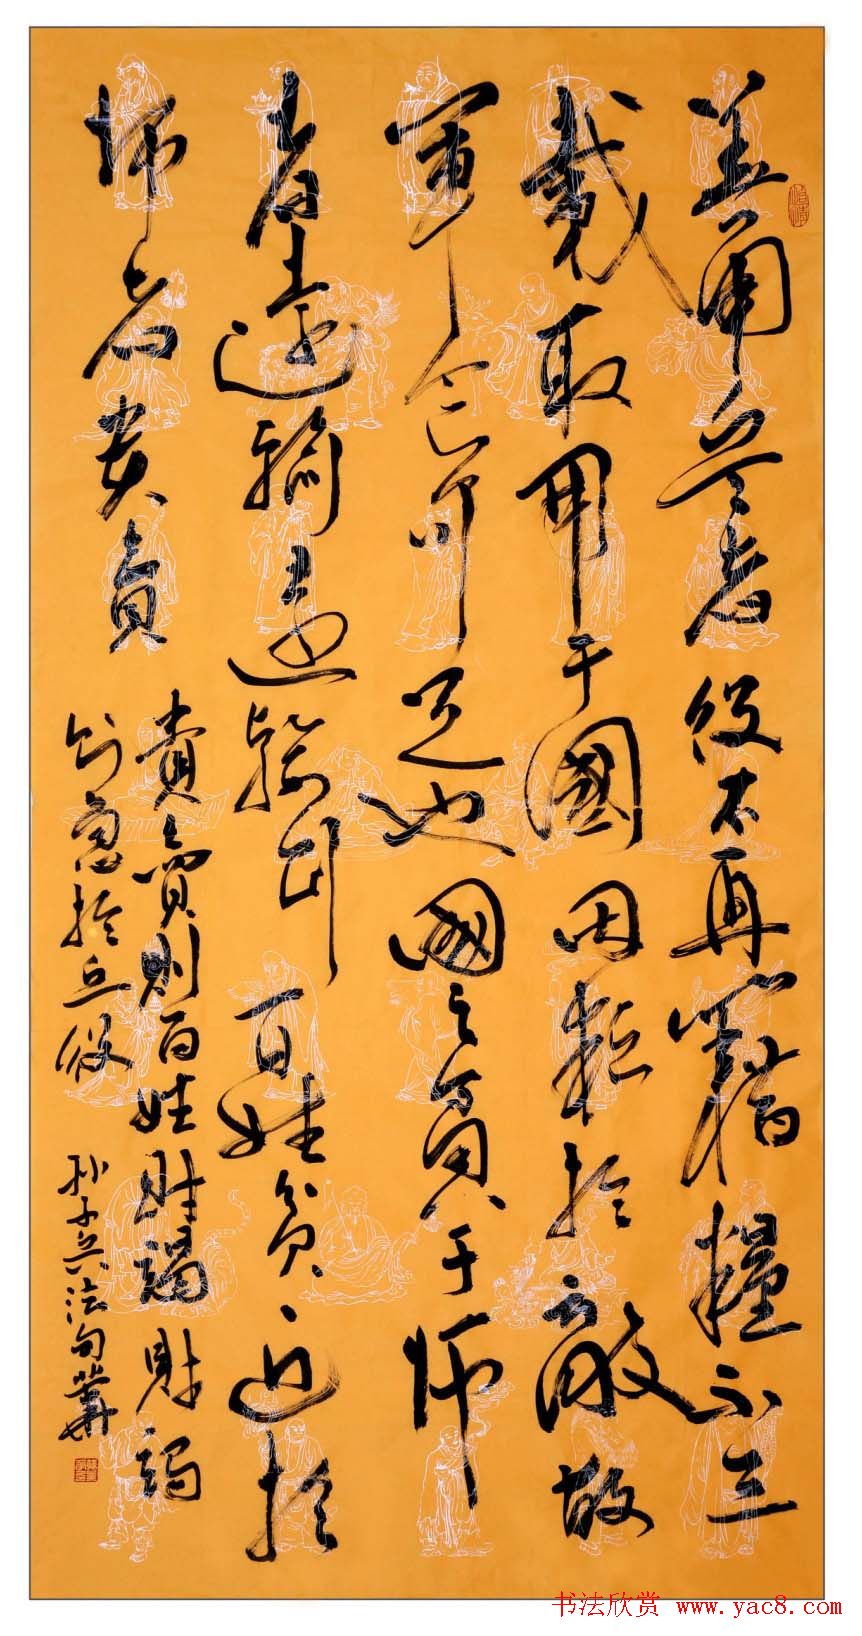 善用兵者役不再籍糧不三
載取用于國因糧於敵故
軍食可足也國之貧于師
者遠輸遠輸則百姓貧近於
師者貴賣
貴賣則百姓財竭財竭
則急於丘役 孙子兵法句
书法欣赏 www.yac8.com